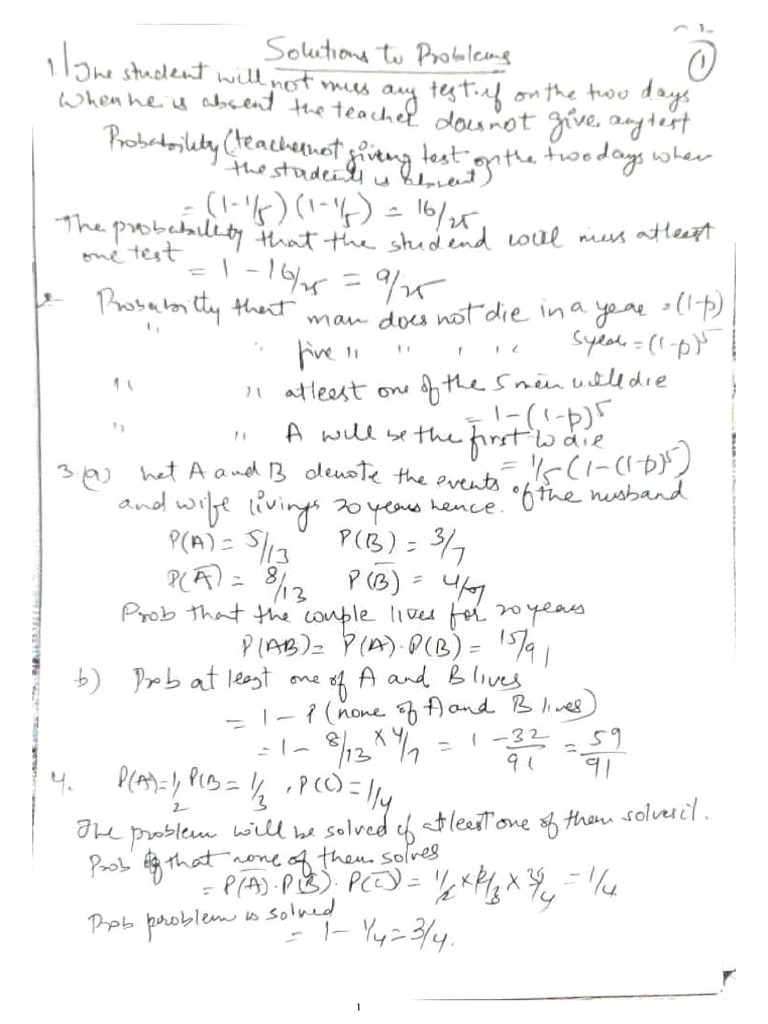 Solutions to Problems
1
1. The student will not miss any test if on the two days
when he is absent the teacher does not give any test
Probability (teacher not giving test on the two days when
the student is absent)
= (1-1/5) (1-1/5) = 16/25
The probability that the studend will miss atleast
one test
= 1 - 16/25 = 9/25
Probability that man does not die in a year = (1-p)
" five " " " " 5 year = (1-p)^5
" " atleast one of the 5 men will die
= 1-(1-p)^5
" " A will be the first to die
= 1/5 (1-(1-p)^5)
3.(a) Let A and B denote the events of the husband
and wife livings 20 years hence.
P(A) = 5/13 P(B) = 3/7
P(A̅) = 8/13 P(B̅) = 4/7
Prob that the couple lives for 20 years
P(AB) = P(A).P(B) = 15/91
b) Prob at least one of A and B lives
= 1 - P (none of A and B lives)
= 1 - 8/13 x 4/7 = 1 - 32/91 = 59/91
4. P(A)=1/2 P(B = 1/3, P(C) = 1/4
The problem will be solved if atleast one of them solves it.
Prob that none of them solves
= P(A̅).P(B̅).P(C̅) = 1/2 x 2/3 x 3/4 = 1/4
Prob problem is solved
= 1 - 1/4 = 3/4.
1